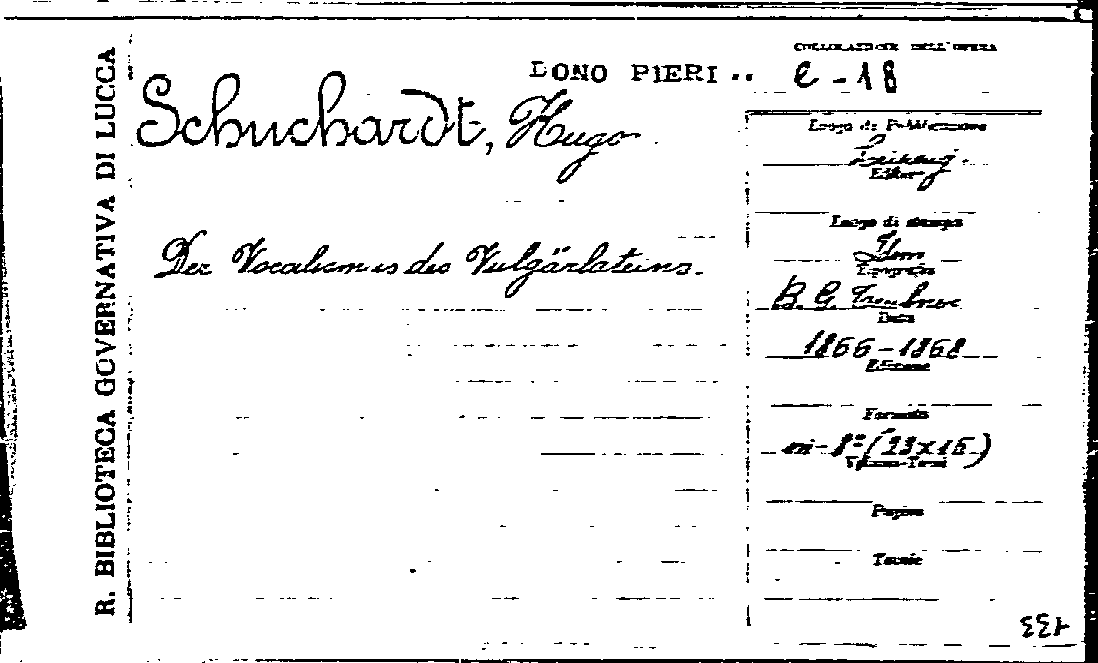 R. BIBLIOTECA GOVERNATIVA DI LUCCA
COLLOCAZIONE DELL'OPERA
DONO PIERI .. C - 18
Schuchardt, Hugo
Luogo di Pubblicazione
Leipzig.
Editore
Der Vocalismus des Vulgärlateins.
Luogo di stampa
Idem
Tipografia
B. G. Teubner
Data
1866-1868
Edizione
Formato
in-8º (23x15)
Volume-Tomi
Pagine
Tavole
133